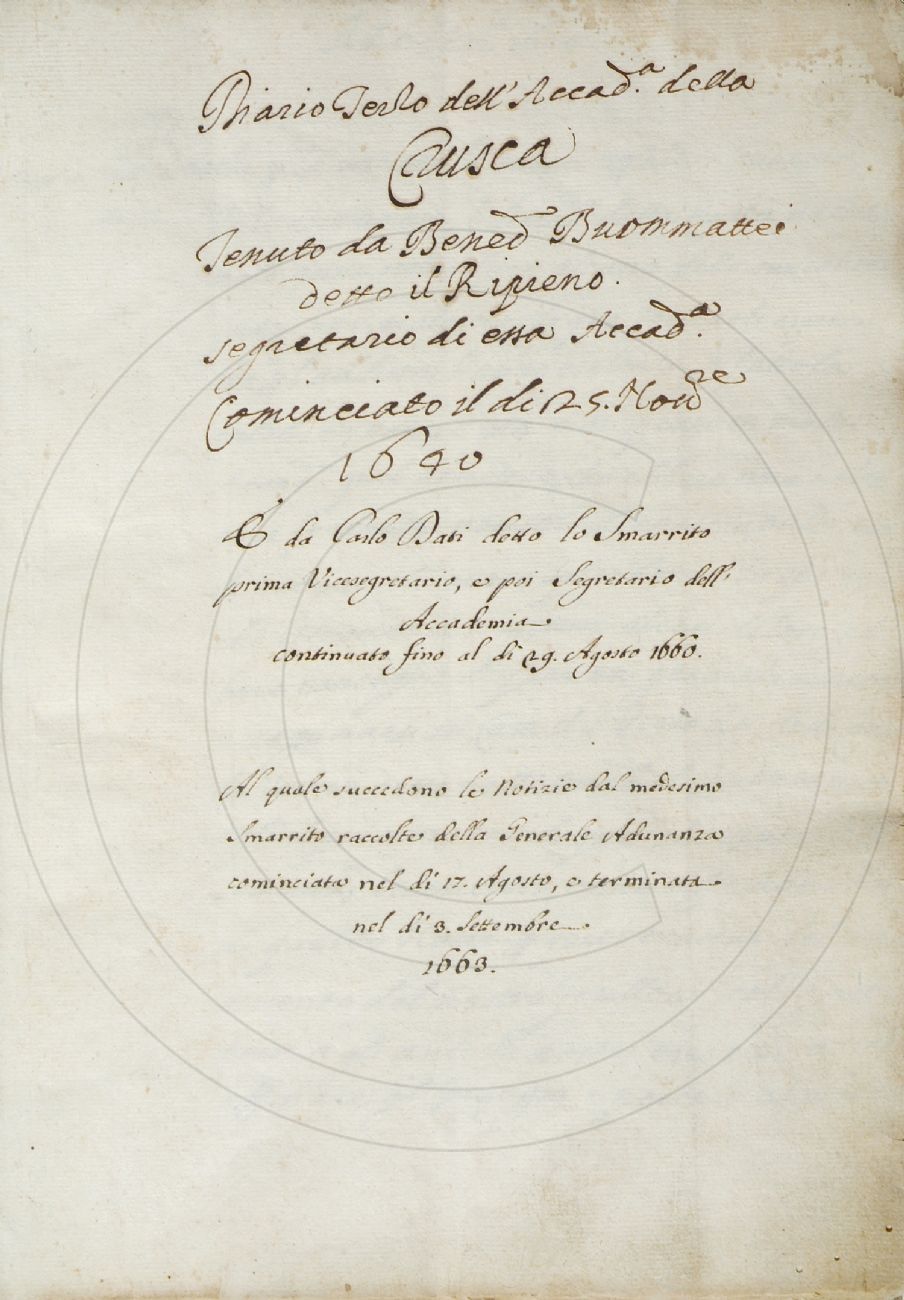 Diario Terzo dell'Accad.a della
Crusca
Tenuto da Bened.o Buommattei
detto il Ripieno.
segretario di essa Accad.a
Cominciato il di 25. Nov.re
1640
E da Carlo Dati detto lo Smarrito
prima Vicesegretario, e poi Segretario dell'
Accademia
continuato fino al dì 29. Agosto 1660.
Al quale succedono le Notizie dal medesimo
Smarrito raccolte della Generale Adunanza
cominciata nel dì 17. Agosto, e terminata
nel dì 3. Settembre
1663.